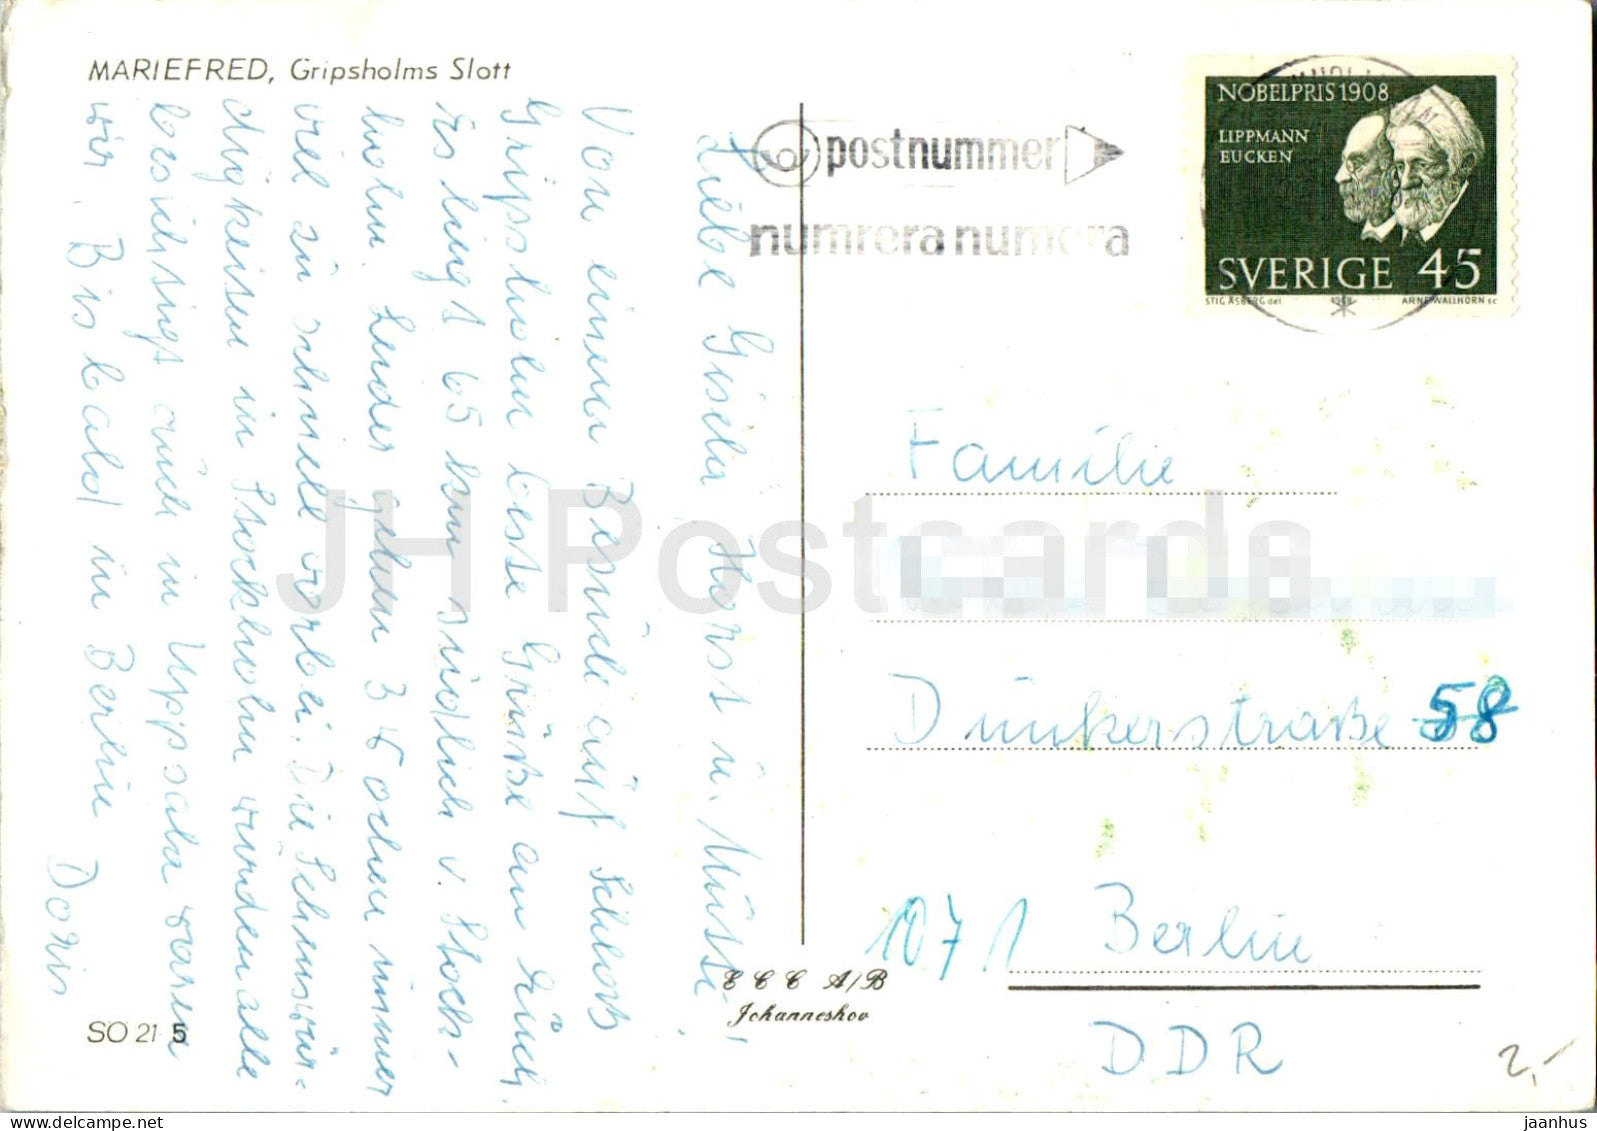 MARIEFRED, Gripsholms Slott
Liebe Gisela, Horst u. Mussi,
Von einem Besuch auf Schloß
Gripsholm beste Grüße an Euch.
Es liegt 65 km südlich v. Stock-
holm. Leider gehen 3 Wochen immer
viel zu schnell vorbei. Die Sehenswür-
digkeiten in Stockholm wurden alle
besichtigt auch in Uppsala waren
wir. Bis bald in Berlin
Doris
SO 21 5
E C C A/B
Johanneshov
postnummer
numrera numera
NOBELPRIS 1908
LIPPMANN
EUCKEN
SVERIGE 45
STIG ÅSBERG del 1968 ARNE WALLHORN sc
Familie
Dunkerstraße 58
1071 Berlin
DDR
2,-
JH Postcards
jaanhus @ delcampe.net